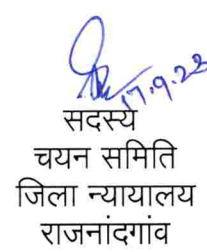 17.9.22
सदस्य
चयन समिति
जिला न्यायालय
राजनांदगांव